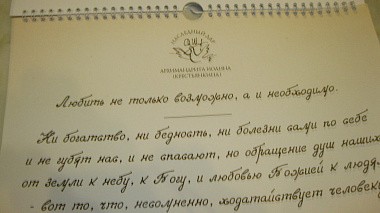 НАСЛЕДНЫЙ ДАР
АРХИМАНДРИТА ИОАННА
(КРЕСТЬЯНКИНА)
Любить не только возможно, а и необходимо.
Ни богатство, ни бедность, ни болезни сами по себе
и не губят нас, и не спасают, но обращение душ наших
от земли к небу, к Богу, и любовью Божией к людя-
- вот то, что, несомненно, ходатайствует человек